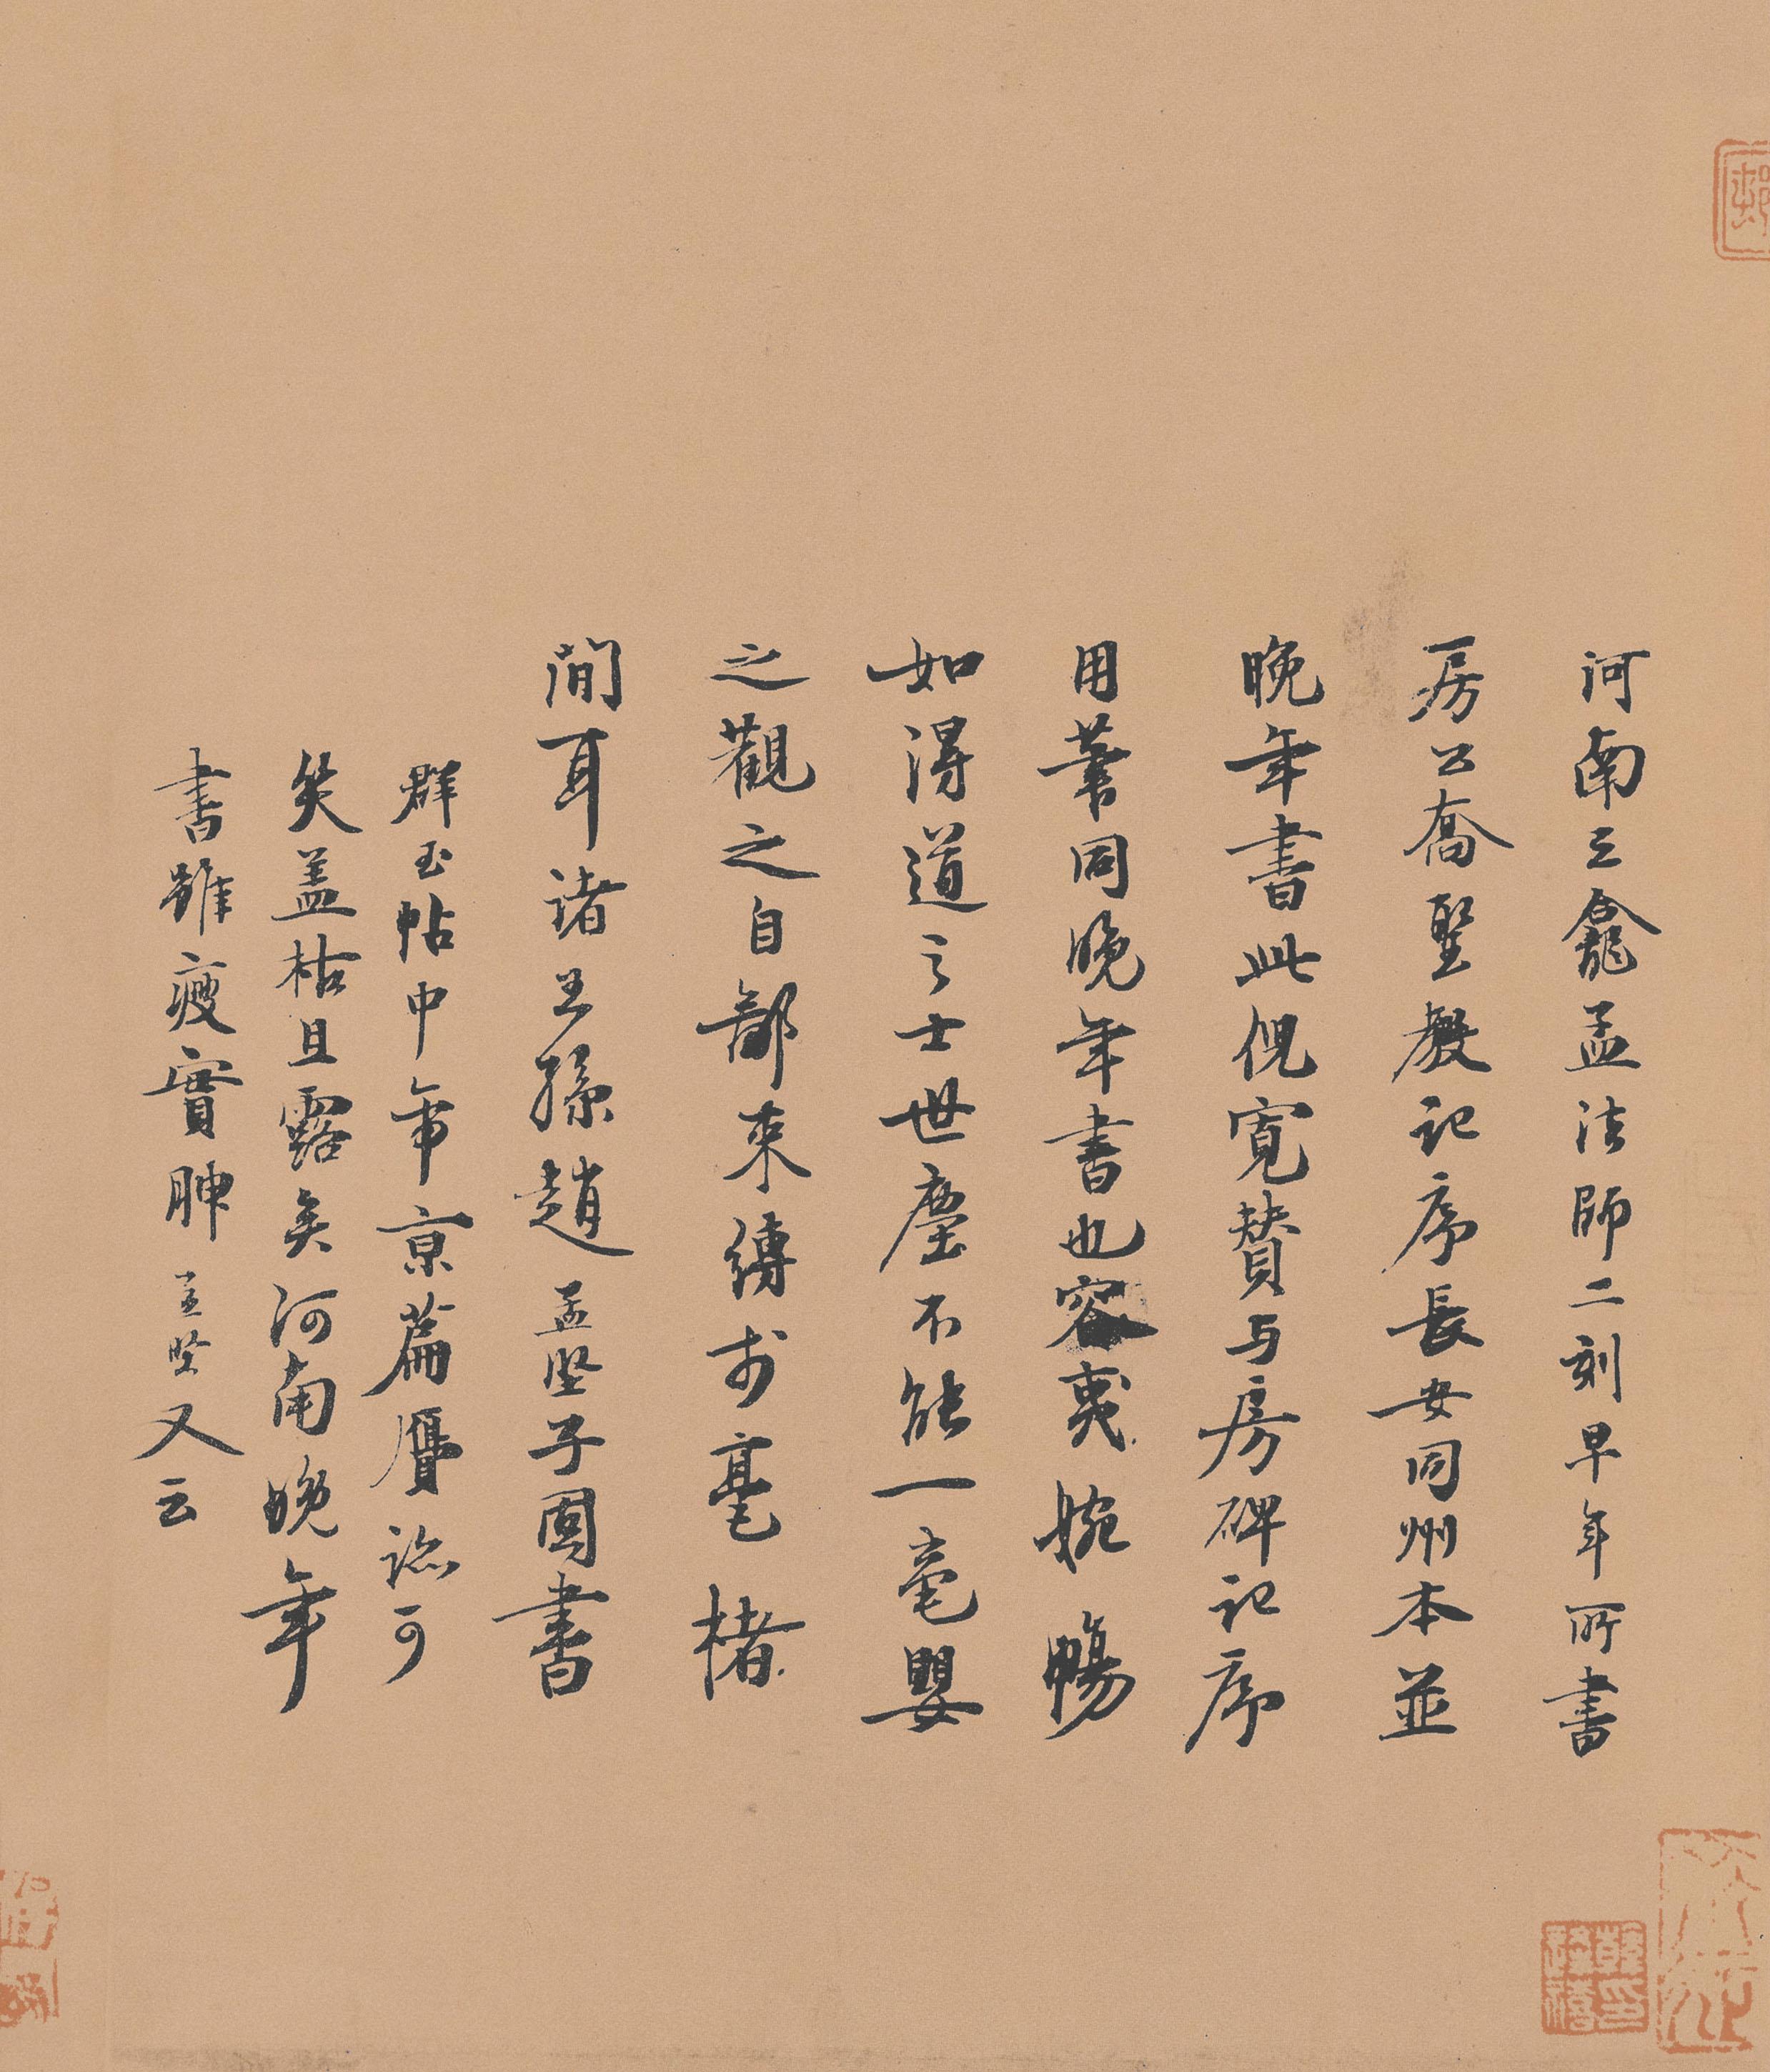 河南三龕孟法師二刻早年所書
房公喬聖教記序長安同州本並
晚年書此倪寬贊与房碑記序
用筆同晚年書也容夷婉暢
如得道之士世塵不能一毫嬰
之觀之自鄙束縛於毫楮
間耳諸王孫趙孟堅子固書
群玉帖中帝京篇贋跡可
笑蓋枯且露矣河南晚年
書雖瘦實腴孟堅又云